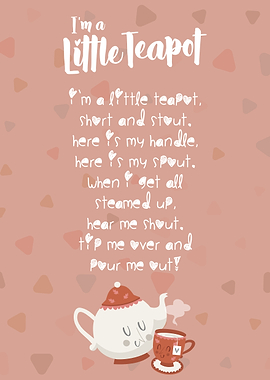 I'm a
Little Teapot
i'm a little teapot,
short and stout.
here is my handle,
here is my spout.
when i get all
steamed up,
hear me shout.
tip me over and
pour me out!